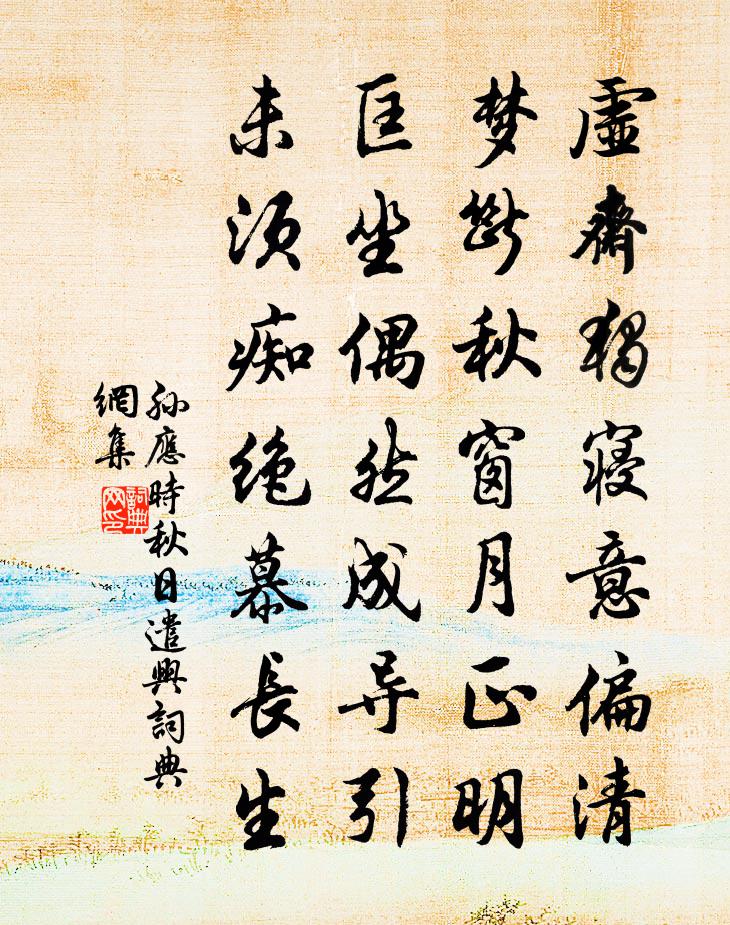 虛齋獨寢意偏清
梦斷秋窗月正明
匡坐偶然成导引
未須痴絶慕長生
孙應時秋日遣興詞典
網集
詞典
网印